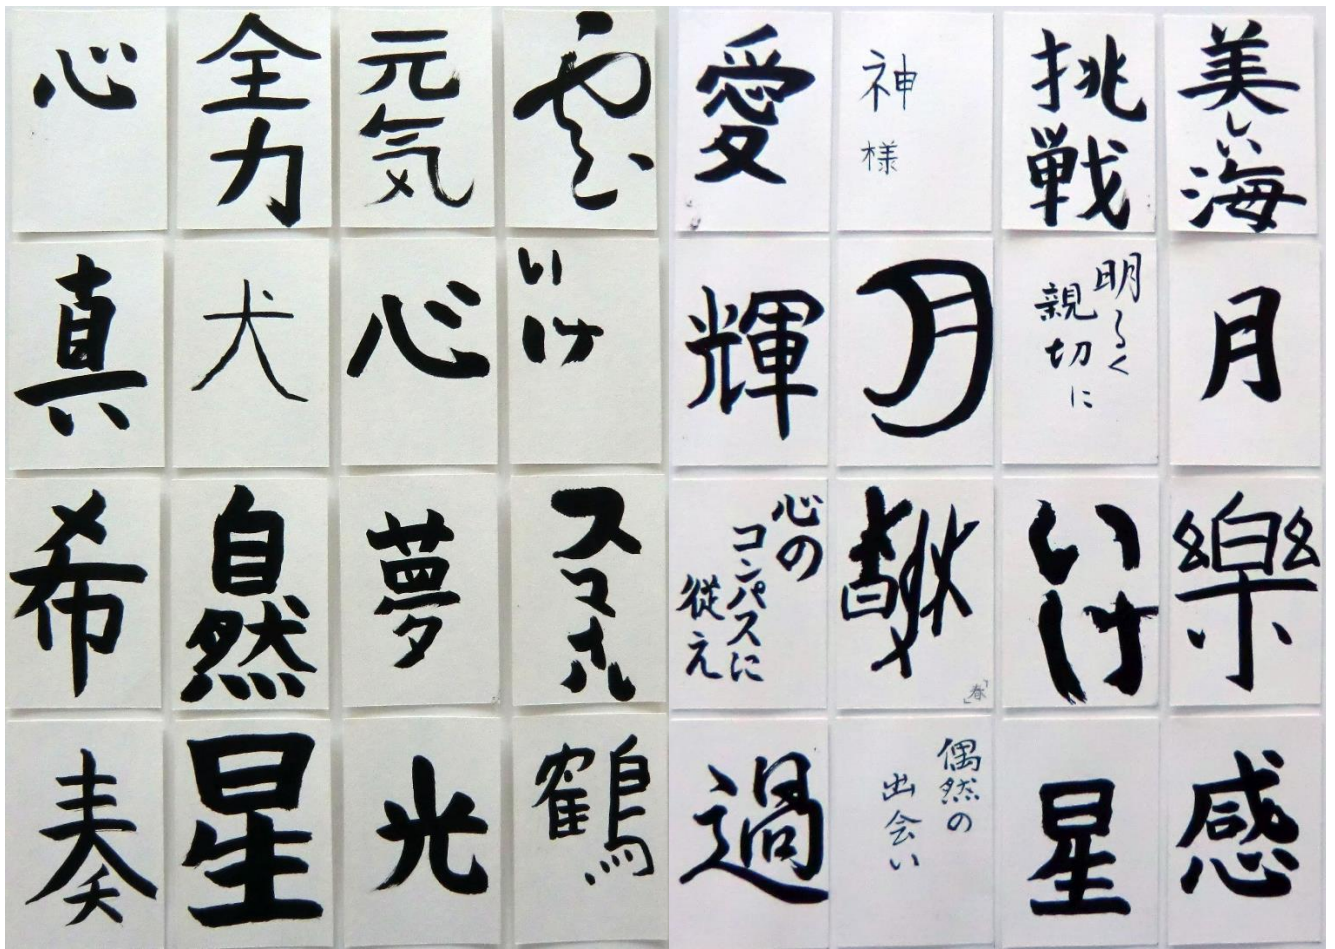 心
全力
元気
雲
愛
神様
挑戦
美しい海
真
犬
心
いけ
輝
月
明るく
親切に
月
希
自然
夢
スマホ
心の
コンパスに
従え
「春」
いけ
樂
奏
星
光
鶴
過
偶然の
出会い
星
感